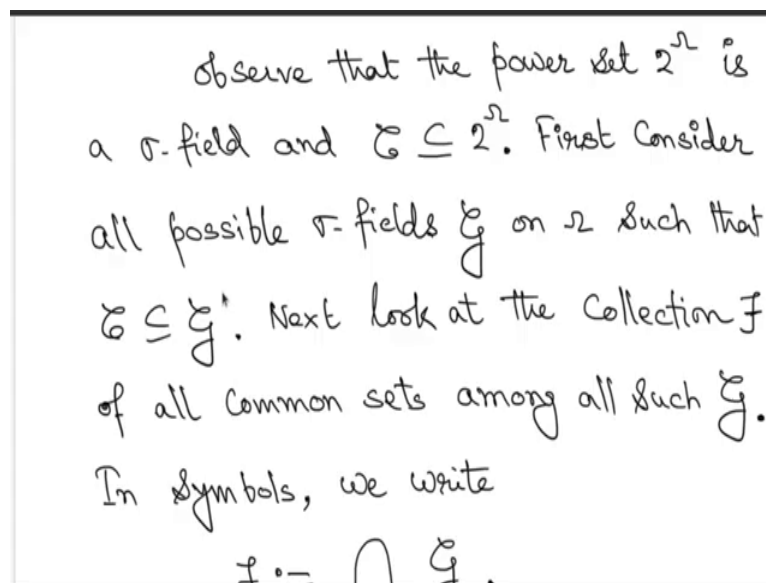 observe that the power set 2^Ω is
a σ-field and 𝒞 ⊆ 2^Ω. First Consider
all possible σ-fields 𝒢 on Ω such that
𝒞 ⊆ 𝒢. Next look at the Collection ℱ
of all common sets among all such 𝒢.
In symbols, we write
ℱ := ⋂ 𝒢.